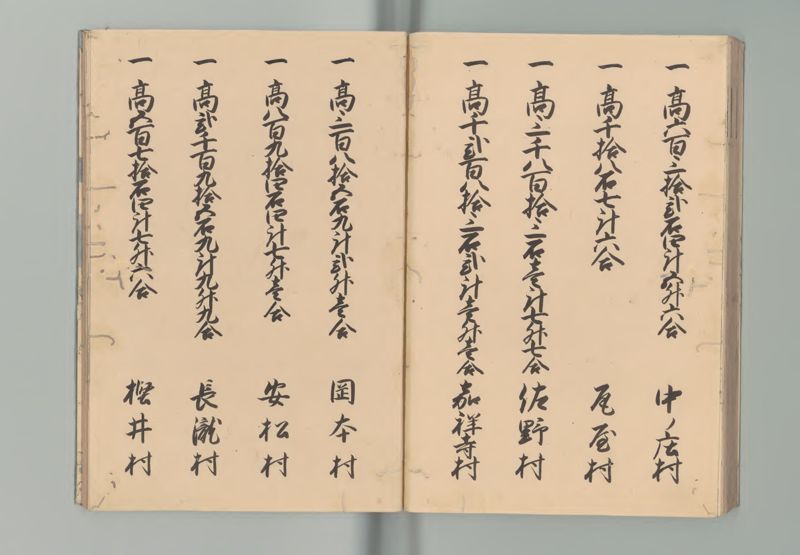 一高六百三拾弐石四斗五升六合 中ノ庄村
一高千拾八石七斗六合 瓦屋村
一高三千八百拾三石壱斗七升七合 佐野村
一高千弐百八拾三石弐斗壱升壱合 嘉祥寺村
一高三百八拾五石九斗弐升壱合 岡本村
一高八百九拾四石四斗七升壱合 安松村
一高弐千百九拾五石九斗九升九合 長瀧村
一高五百七拾石四斗七升六合 樫井村